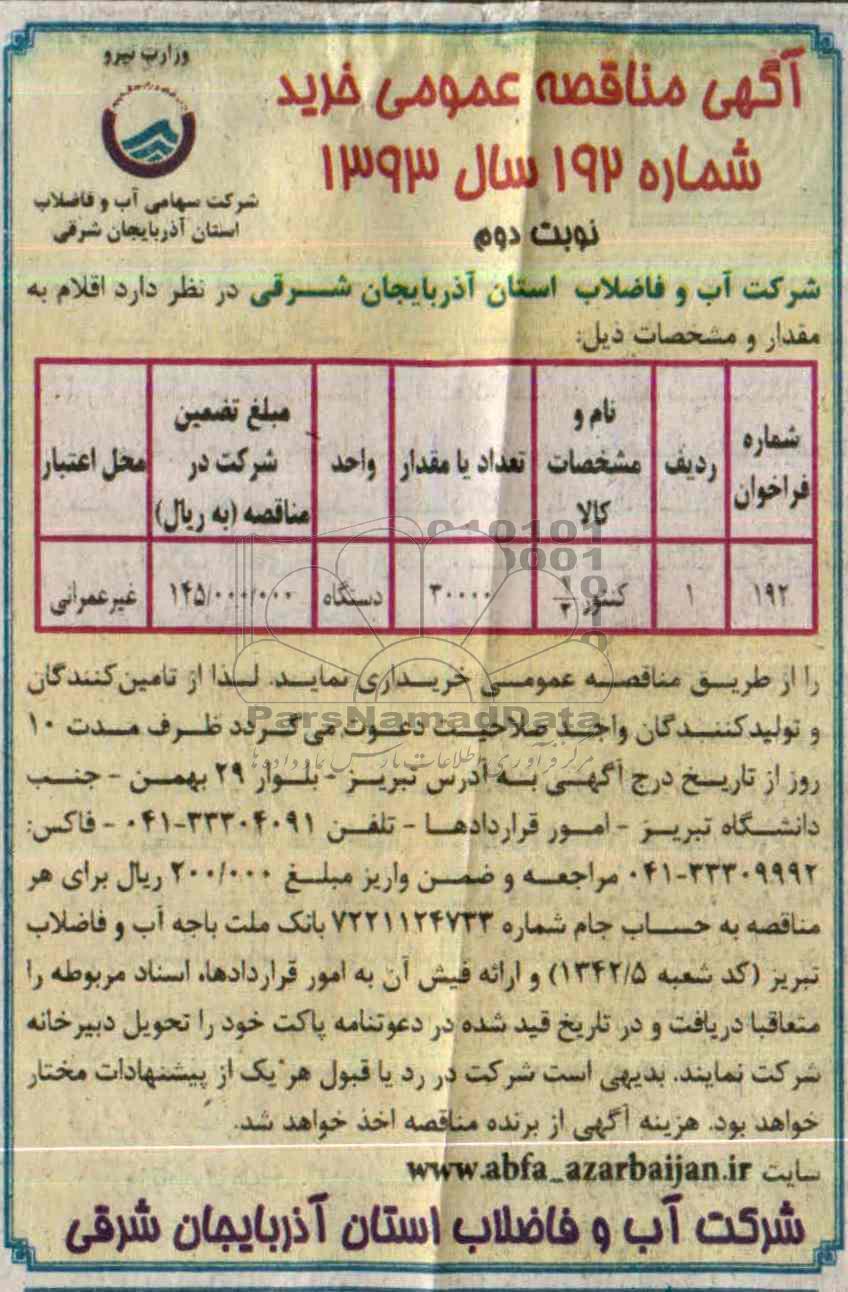 وزارت نیرو
شرکت سهامی آب و فاضلاب
استان آذربایجان شرقی
آگهی مناقصه عمومی خرید
شماره ۱۹۲ سال ۱۳۹۳
نوبت دوم
شرکت آب و فاضلاب استان آذربایجان شرقی در نظر دارد اقلام به
مقدار و مشخصات ذیل:
شماره فراخوان
ردیف
نام و مشخصات کالا
تعداد یا مقدار
واحد
مبلغ تضمین شرکت در مناقصه (به ریال)
محل اعتبار
۱۹۲
۱
کنتور ۱/۲
۳۰۰۰۰
دستگاه
۱۴۵/۰۰۰/۰۰۰
غیرعمرانی
را از طریق مناقصه عمومی خریداری نماید. لذا از تامین‌کنندگان
و تولیدکنندگان واجد صلاحیت دعوت می‌گردد ظرف مدت ۱۰
روز از تاریخ درج آگهی به آدرس تبریز - بلوار ۲۹ بهمن - جنب
دانشگاه تبریز - امور قراردادها - تلفن ۳۳۳۰۴۰۹۱-۰۴۱ - فاکس:
۳۳۳۰۹۹۹۲-۰۴۱ مراجعه و ضمن واریز مبلغ ۲۰۰/۰۰۰ ریال برای هر
مناقصه به حساب جام شماره ۷۲۲۱۱۲۴۷۳۳ بانک ملت باجه آب و فاضلاب
تبریز (کد شعبه ۱۳۴۲/۵) و ارائه فیش آن به امور قراردادها، اسناد مربوطه را
متعاقبا دریافت و در تاریخ قید شده در دعوتنامه پاکت خود را تحویل دبیرخانه
شرکت نمایند. بدیهی است شرکت در رد یا قبول هر یک از پیشنهادات مختار
خواهد بود. هزینه آگهی از برنده مناقصه اخذ خواهد شد.
سایت www.abfa_azarbaijan.ir
شرکت آب و فاضلاب استان آذربایجان شرقی
ParsNamadData
مرکز فرآوری اطلاعات پارس نماد داده‌ها